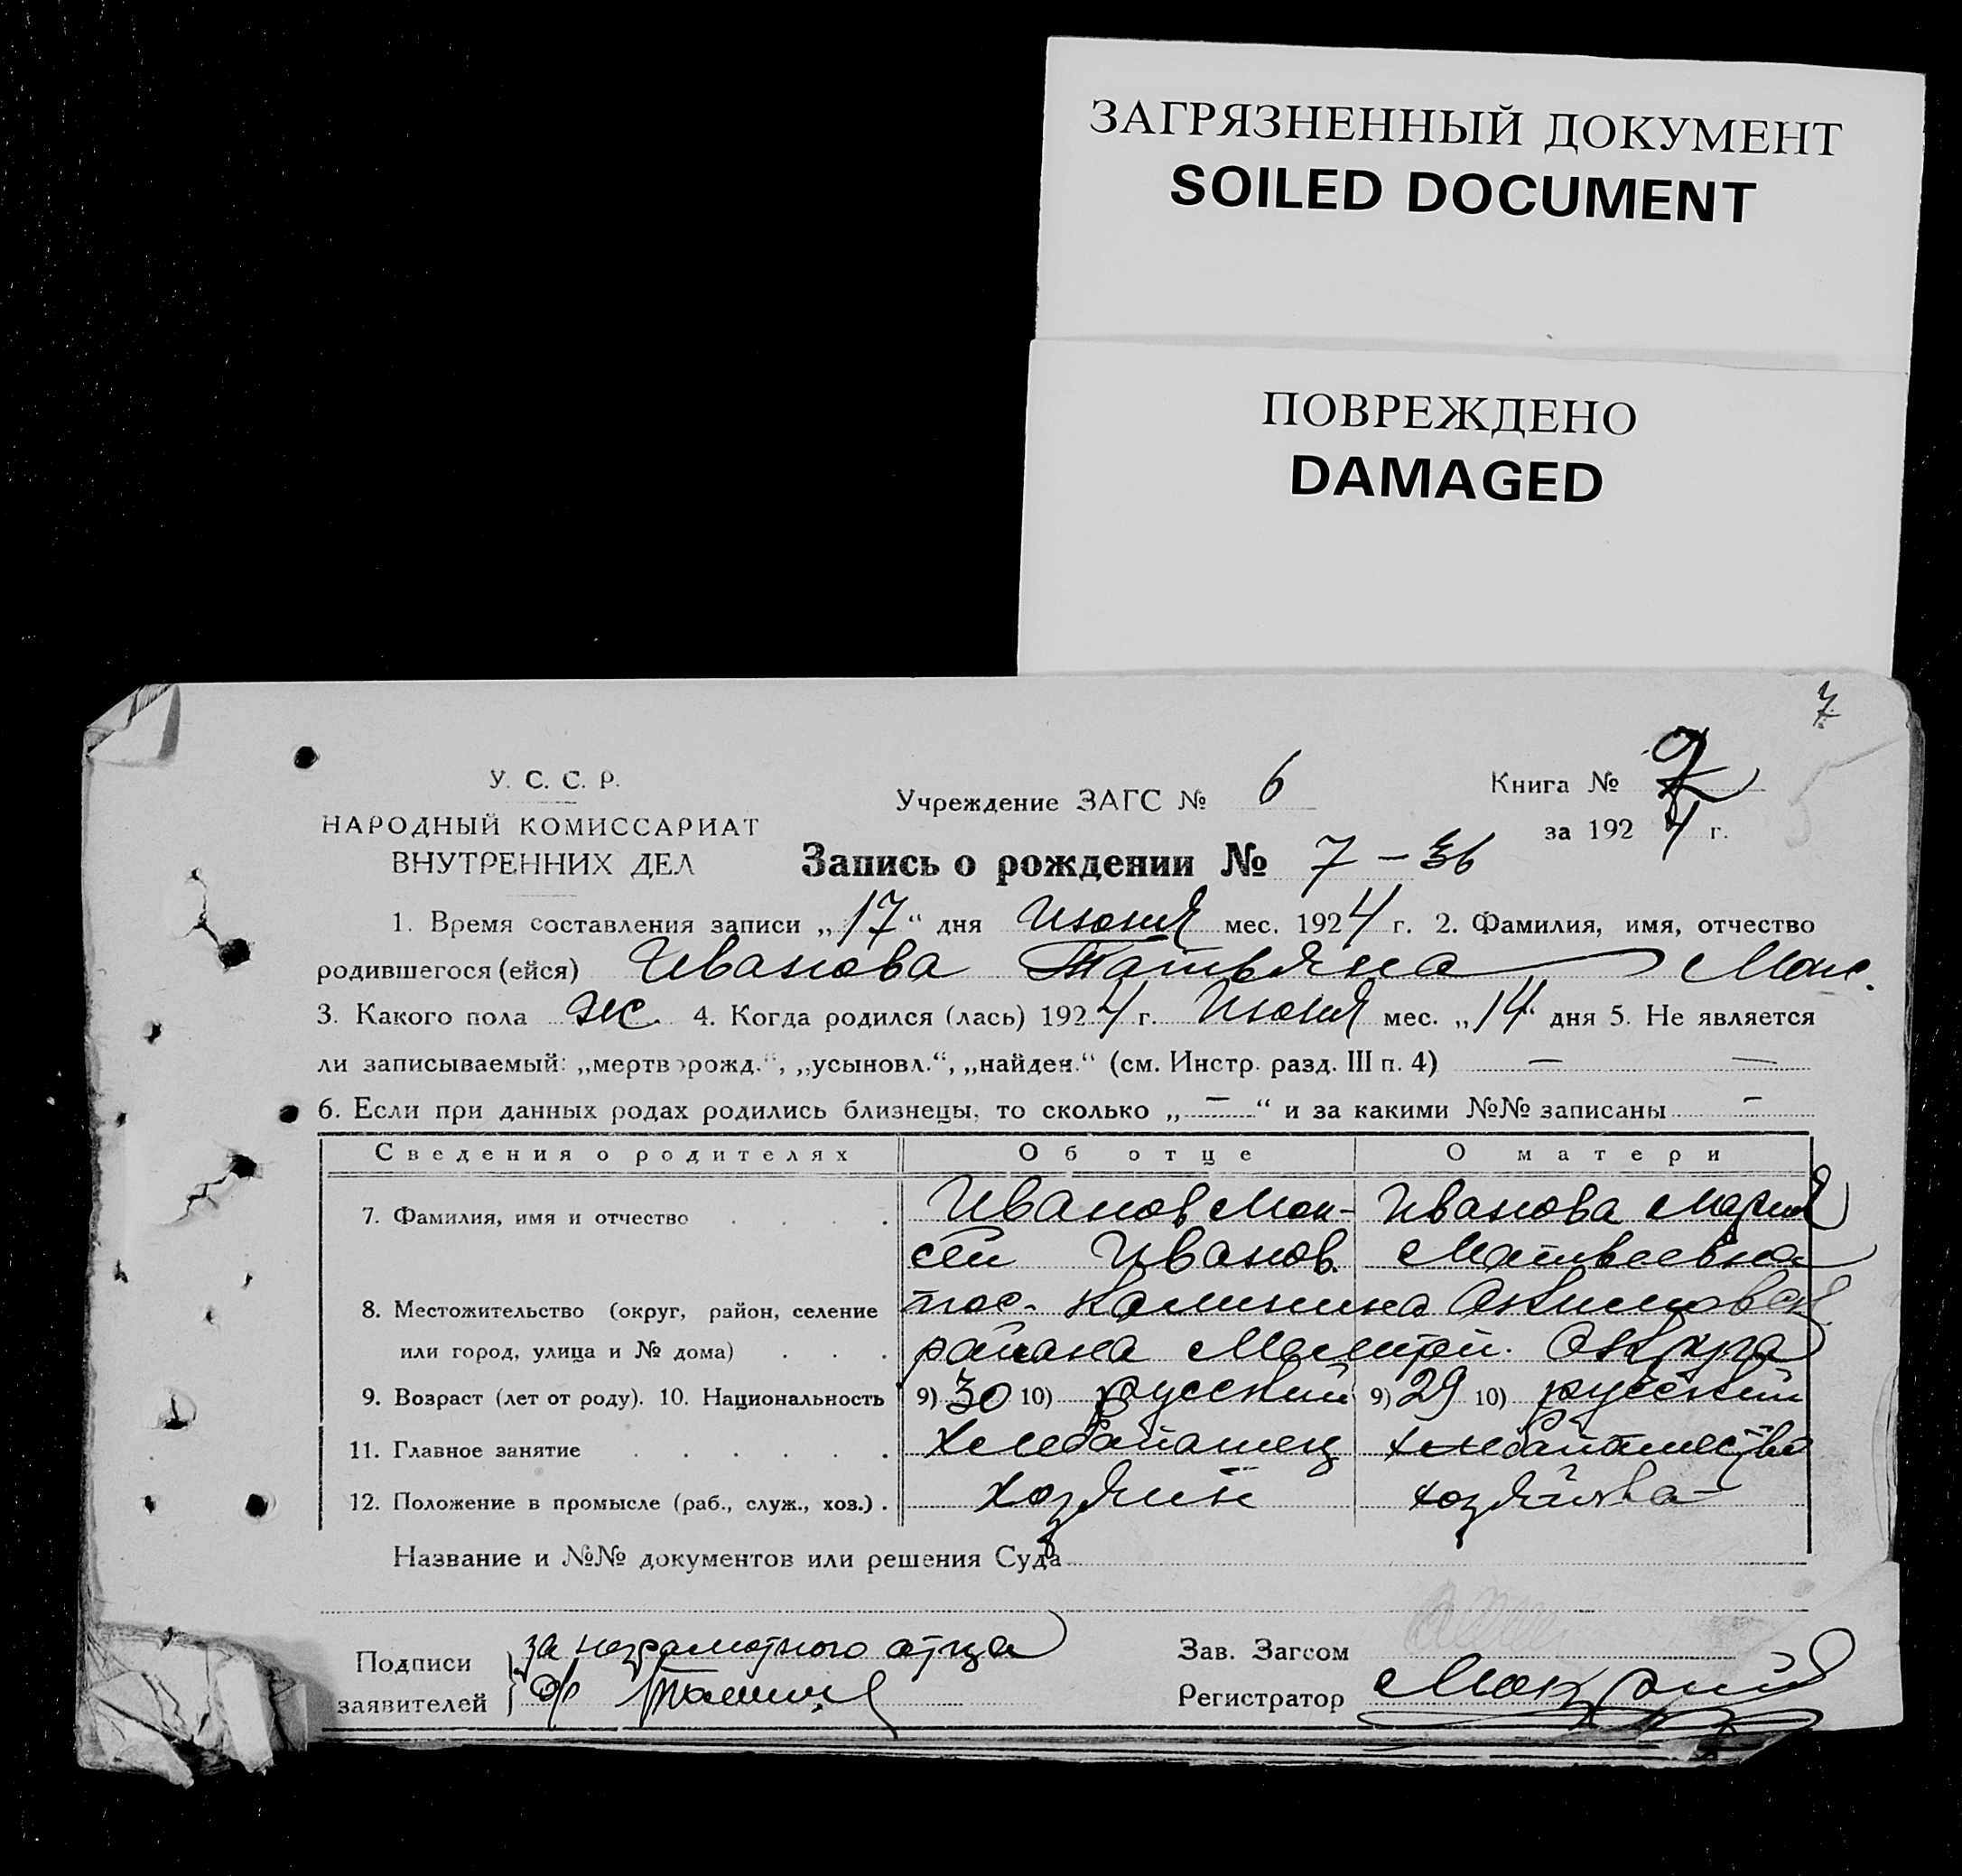 ЗАГРЯЗНЕННЫЙ ДОКУМЕНТ
SOILED DOCUMENT
ПОВРЕЖДЕНО
DAMAGED
7
У. С. С. Р.
НАРОДНЫЙ КОМИССАРИАТ
ВНУТРЕННИХ ДЕЛ
Учреждение ЗАГС № 6
Книга №
за 1924 г.
Запись о рождении № 7 – 36
1. Время составления записи „17“ дня Июня мес. 1924 г. 2. Фамилия, имя, отчество
родившегося (ейся) Иванова Татьяна Моис.
3. Какого пола жс. 4. Когда родился (лась) 1924 г. Июня мес. „14“ дня 5. Не является
ли записываемый: „мертворожд.“, „усыновл.“, „найден.“ (см. Инстр. разд. III п. 4) — —
6. Если при данных родах родились близнецы, то сколько „—“ и за какими №№ записаны —
Сведения о родителях Об отце О матери
7. Фамилия, имя и отчество Иванов Мои- Иванова Мария
сей Иванов. Матвеевна
8. Местожительство (округ, район, селение пос. Калинина Акимовск
или город, улица и № дома) района Мелитоп. Округа
9. Возраст (лет от роду). 10. Национальность 9) 30 10) русский 9) 29 10) русский
11. Главное занятие Хлебопашец хлебопашество
12. Положение в промысле (раб., служ., хоз.) . хозяин хозяйка
Название и №№ документов или решения Суда
Подписи за неграмотного отца
заявителей
Зав. Загсом
Регистратор